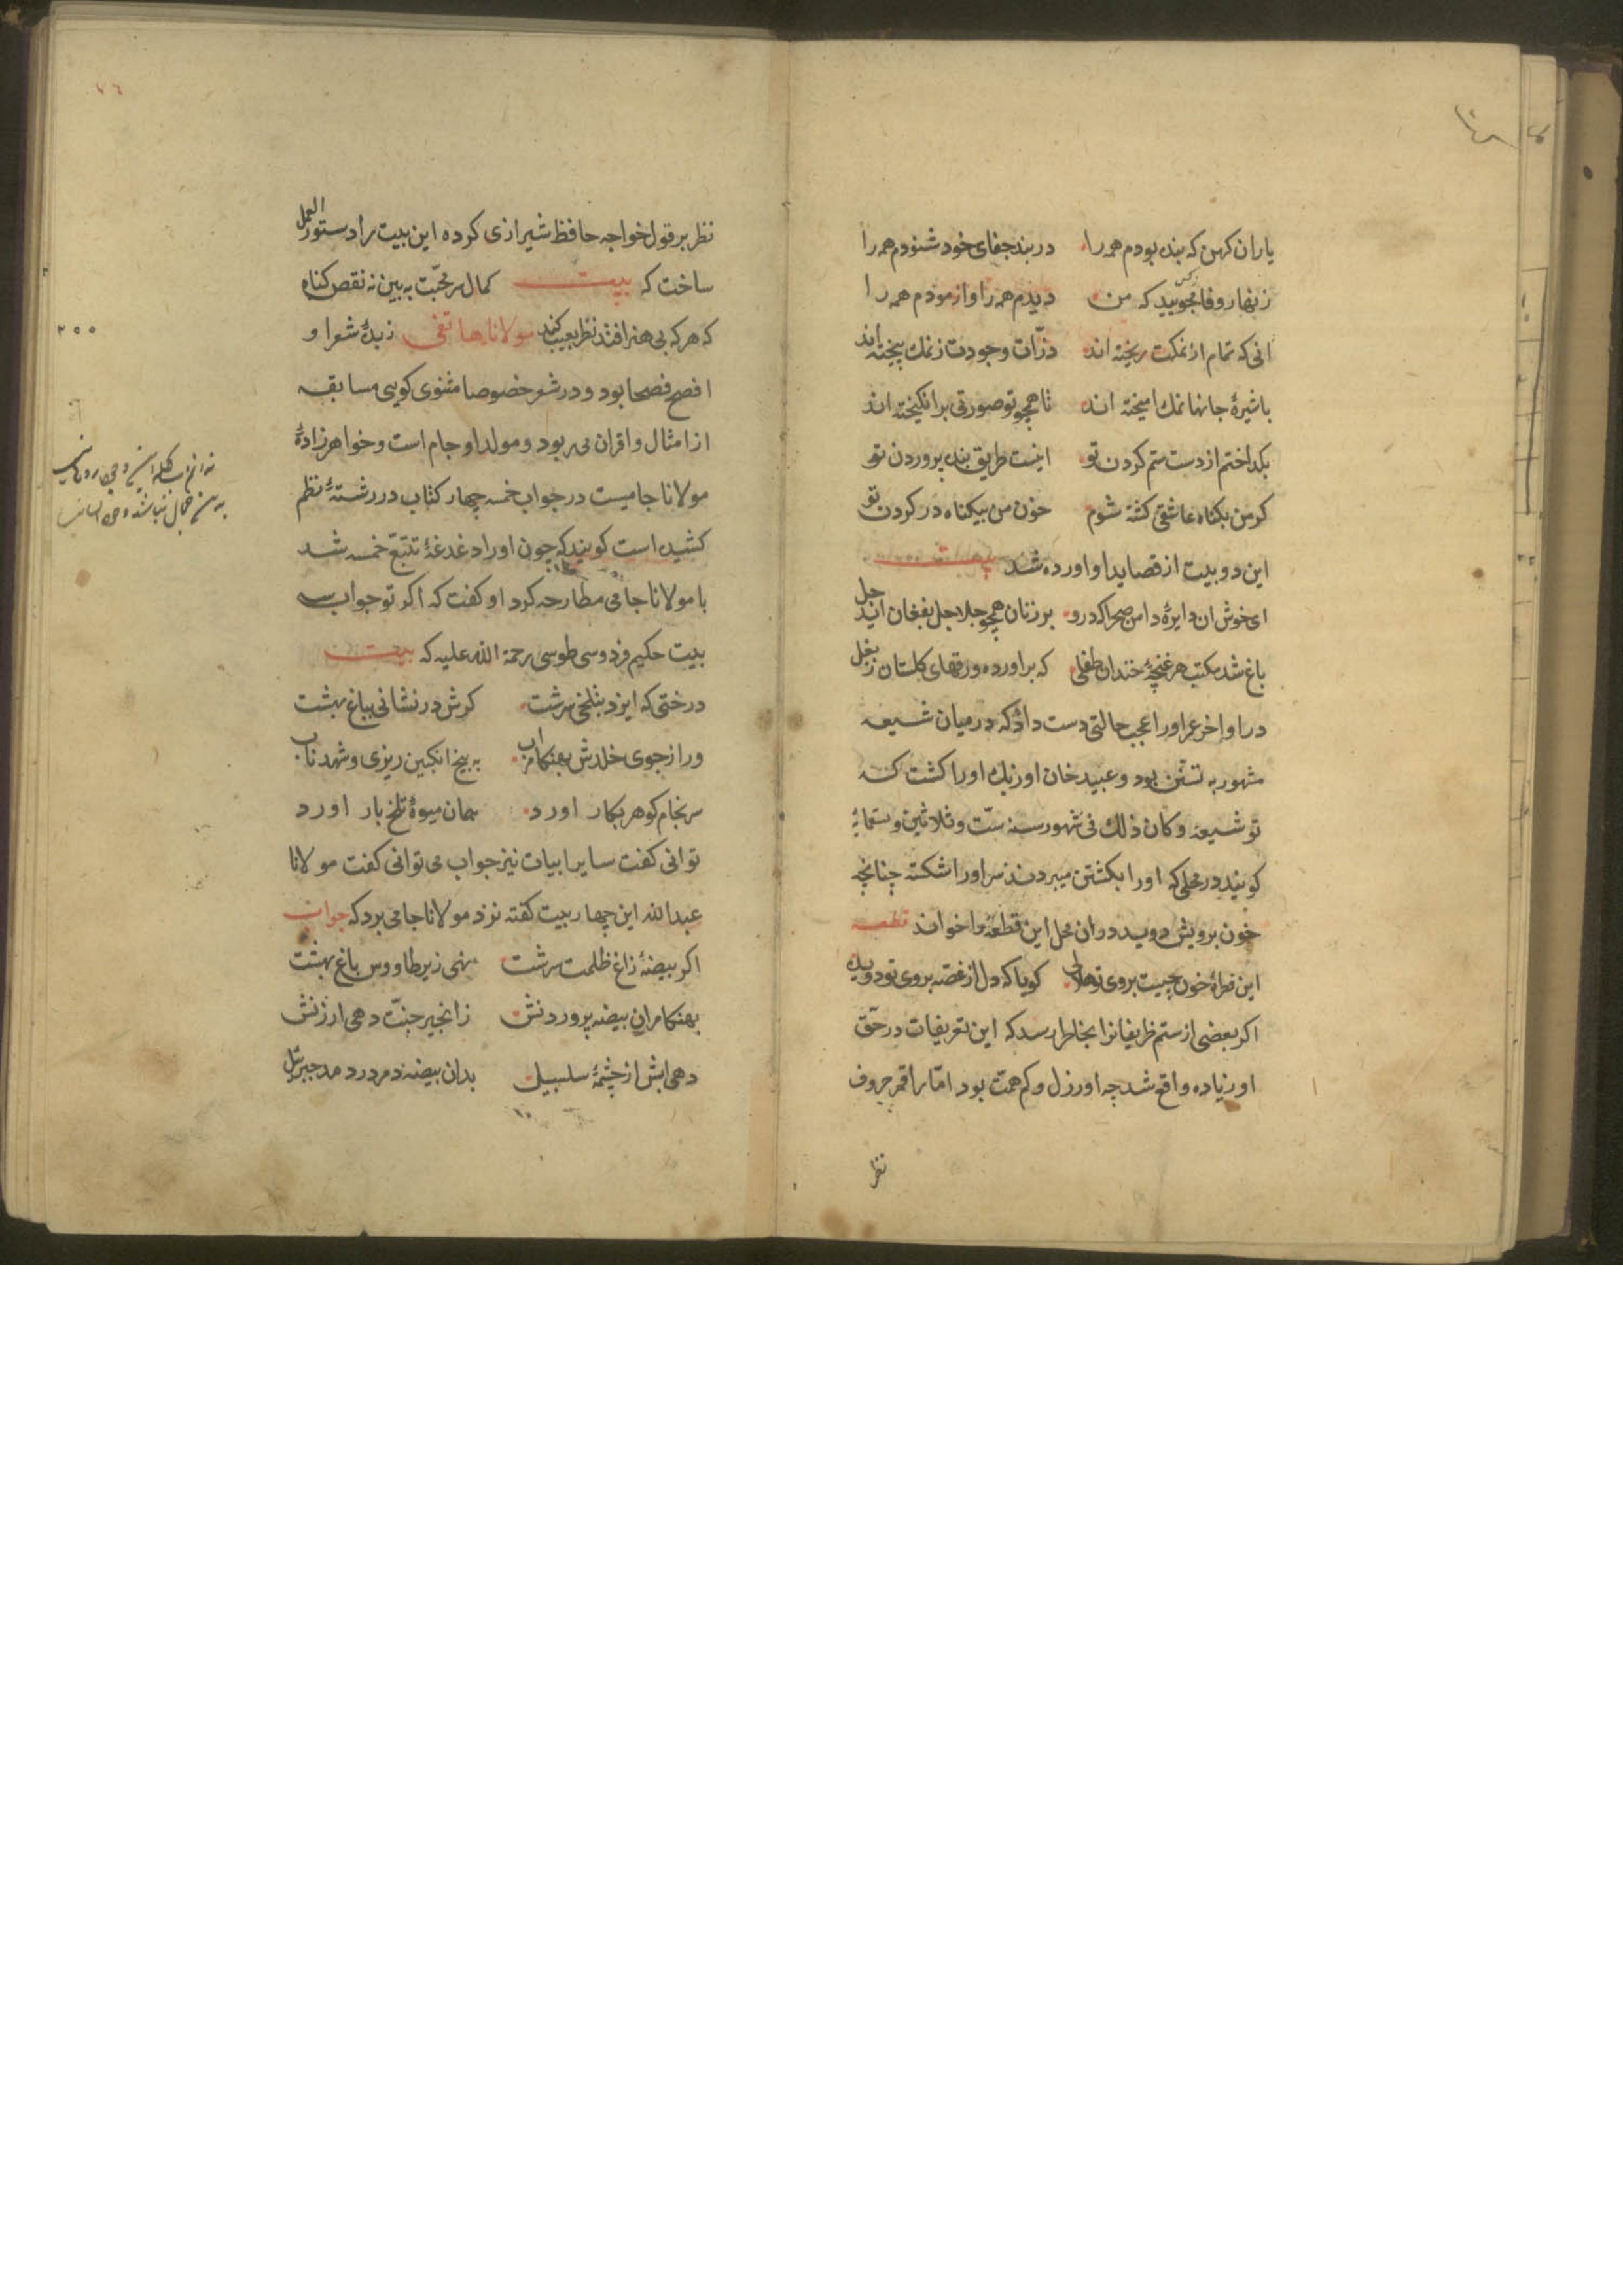 یاران کهن که بنده بودم همه را در بند جفای خود شنودم همه را
زنهار وفا مجویید که من دیدم همه را و ازمودم همه را
انی که تمام از نمکت ریخته اند ذرّات وجودت ز نمک بیخته اند
با شیرهٔ جانها نمک امیخته اند تا همچو تو صورتی برانکیخته اند
بکداختم از دست ستم کردن تو اینست طریق بنده پروردن تو
کر من بکناه عاشقی کشته شوم خون من بیکناه در کردن تو
این دو بیت از قصاید او اورده شد
ای خوش ان دایرهٔ دامن صحرا که درو بر زنان همچو جلاجل بفغان اید جل
باغ شد مکتب هر غنچهٔ خندان طفلی که براورده ورقهای کلستان ز بغل
در اواخر عمر او را عجب حالتی دست داد که در میان شیعه
مشهور به تسنّن بود و عبید خان اوزبک او را کشت که
تو شیعهٔ و کان ذلک فی شهور سنه ستّ و ثلاثین و تسعمایٔه
کویند در محلی که او را بکشتن میبردند سر او را شکسته چنانچه
خون برویش دوید در ان محل این قطعه را خواند قطعه
این قطرهٔ خون چیست بروی تو هلالی کویا که دل از غصّه بروی تو دویده
اکر بعضی از ستم ظریفانرا بخاطر رسد که این تعریفات در حقّ
او زیاده واقع شد چه او رزل و کم همّت بود امّا راقم حروف
نظر
۷٦
نظر بر قول خواجه حافظ شیرازی کرده این بیت را دستور العمل
ساخت که بیت کمال سرّ محبّت به بین نه نقص کناه
که هر که بی هنر افتد نظر بعیب کند مولانا هاتفی زبدهٔ شعرا و
افصح فصحا بود و در شعر خصوصا مثنوی کویی مسابقه
از امثال و اقران می ربود و مولد او جام است و خواهرزادهٔ
مولانا جامیست در جواب خمسه چهار کتاب در رشتهٔ نظم
کشیده است کویند که چون او را دغدغهٔ تتبّع خمسه شد
با مولانا جامی مطارحه کرد او کفت که اکر تو جواب سه
بیت حکیم فردوسی طوسی رحمة الله علیه که بیت
درختی که ایزد بتلخی سرشت کرش در نشانی بباغ بهشت
ور از جوی خلدش بهنکام اب به بیخ انکبین ریزی و شهد ناب
سرنجام کوهر بکار اورد همان میوهٔ تلخ بار اورد
توانی کفت سایر ابیات نیز جواب می توانی کفت مولانا
عبدالله این چهار بیت کفته نزد مولانا جامی برد که جواب
اکر بیضهٔ زاغ ظلمت سرشت نهی زیر طاووس باغ بهشت
بهنکام ران بیضه پروردنش ز انجیر جنّت دهی ارزنش
دهی ابش از چشمهٔ سلسبیل بدان بیضه دم در دمد جبریٔل